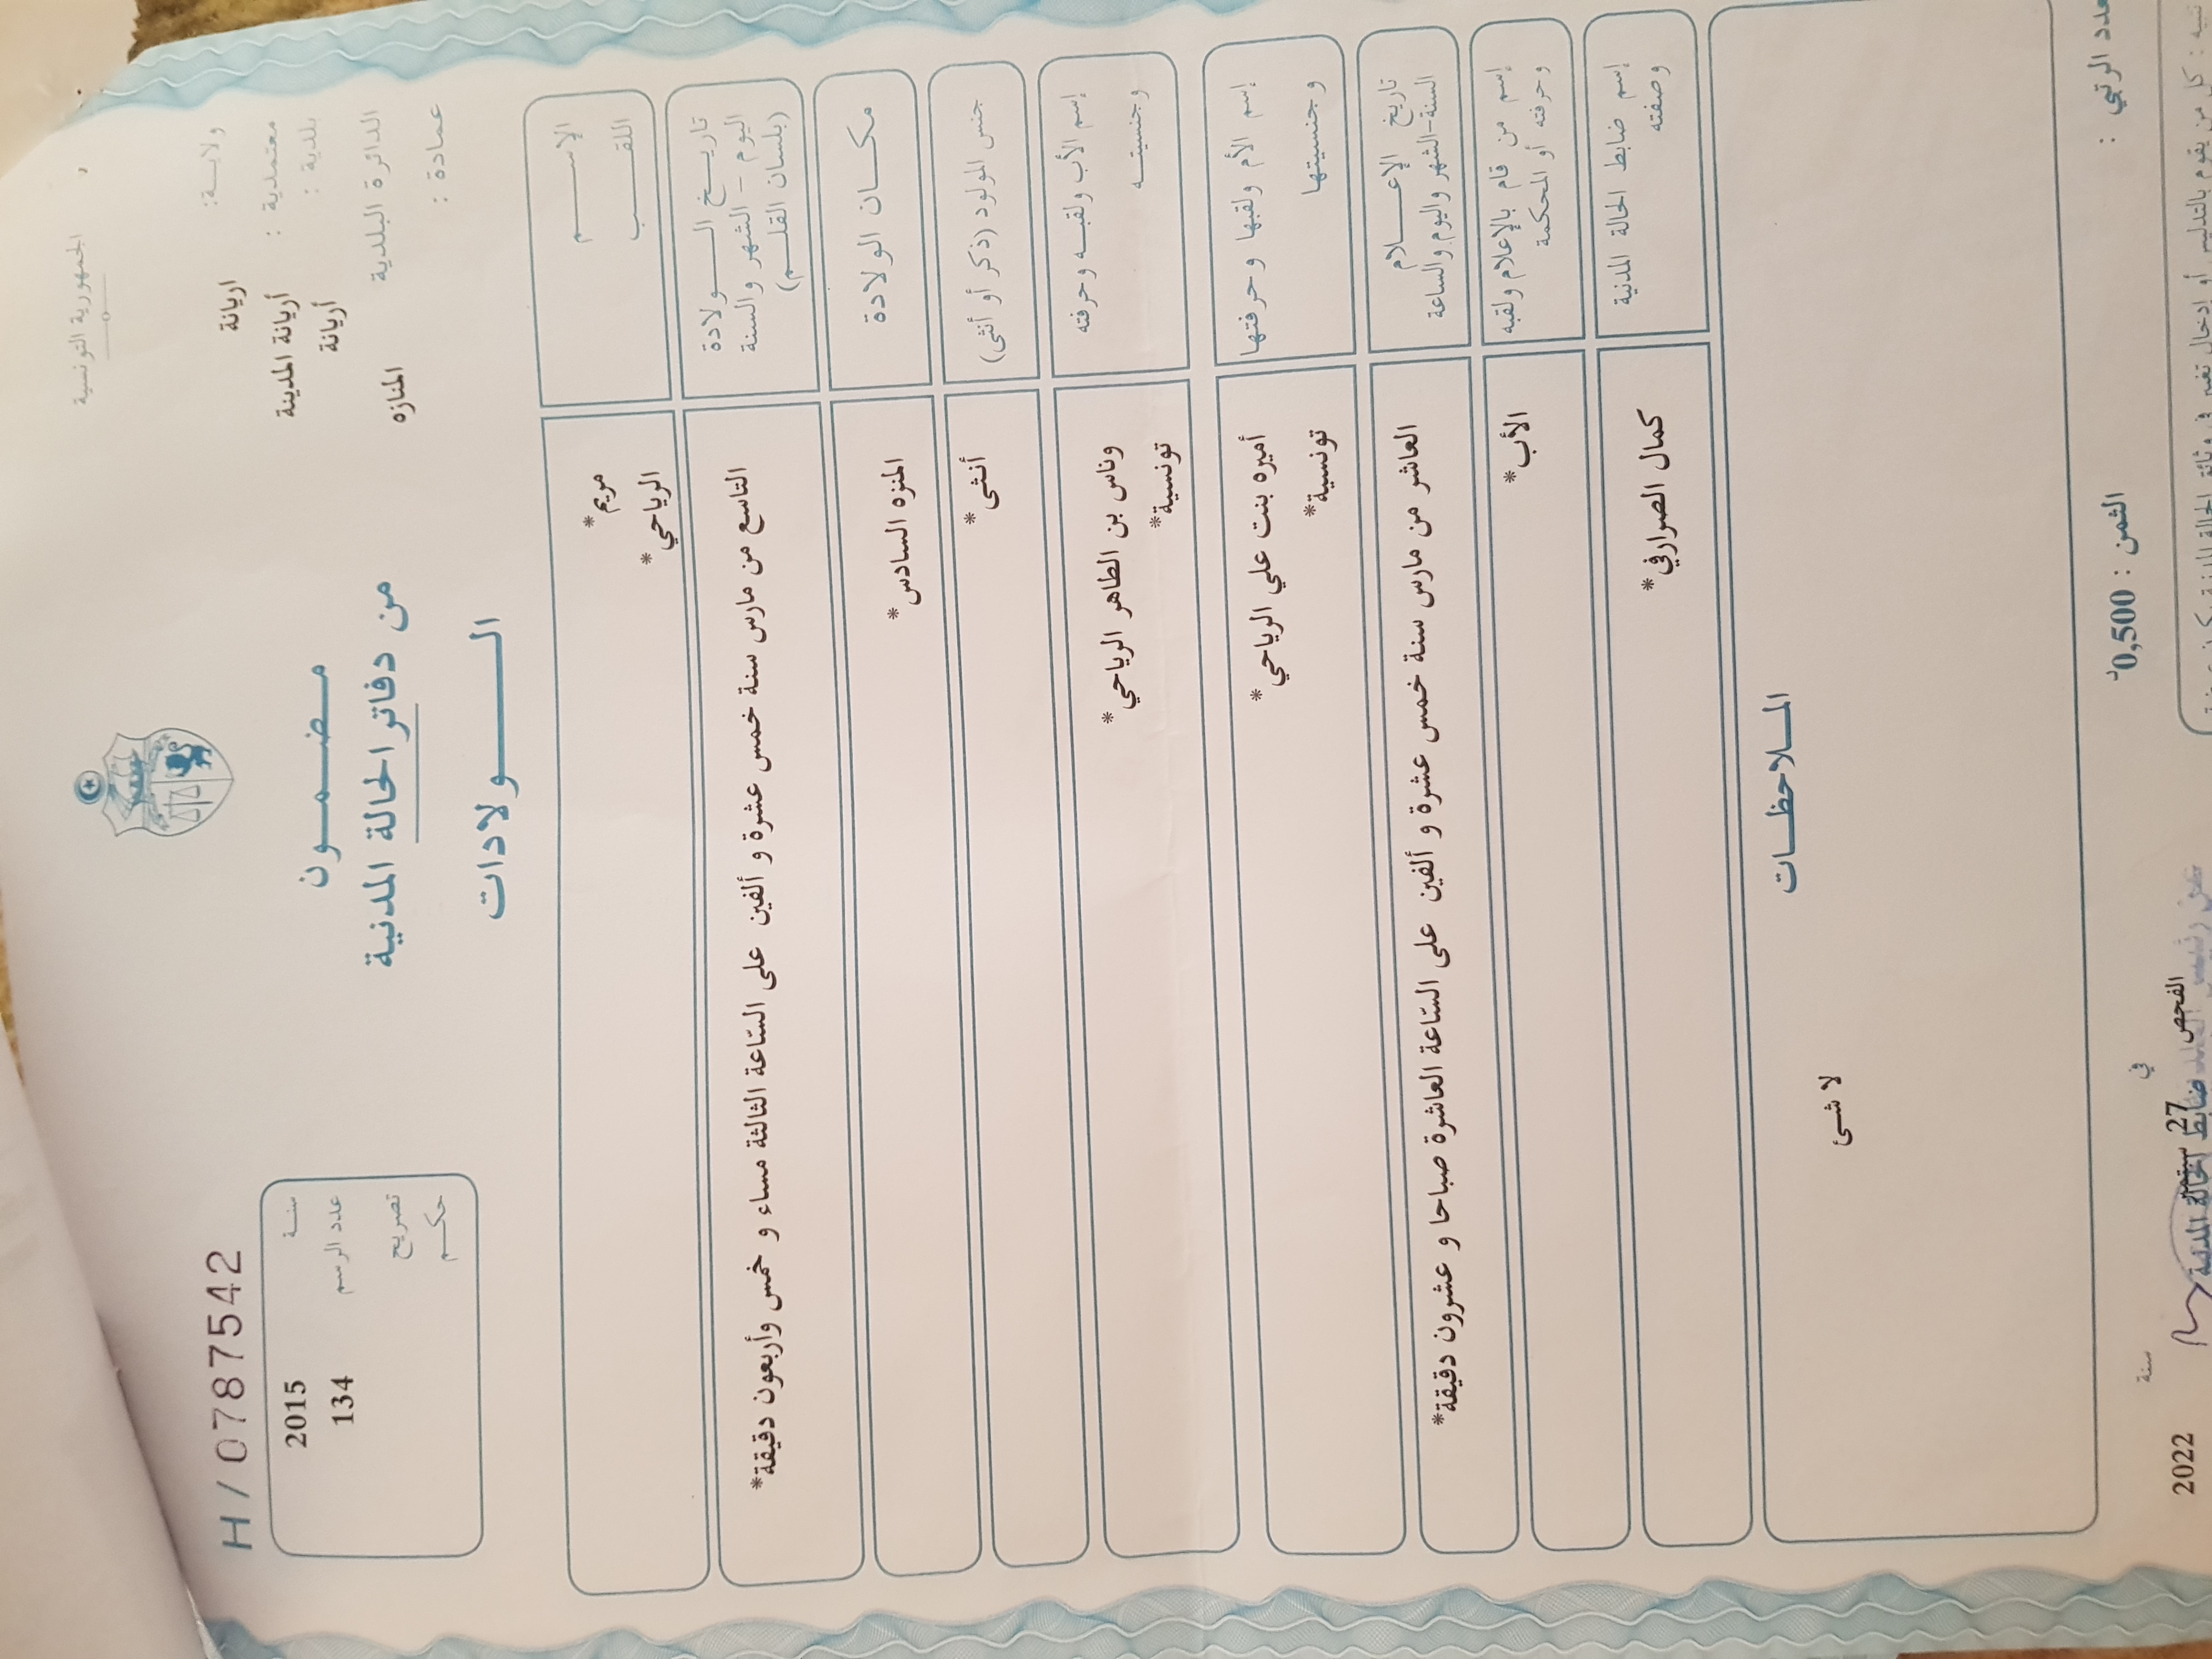 الجمهورية التونسية
H / 07877542
ولايـــة: اريانة
معتمدية : أريانة المدينة
بلدية : أريانة
الدائرة البلدية المنازه
عمادة :
سنـــة 2015
عدد الرسم 134
تصريح
حكـــم
مـضـــمـــون
من دفاتر الحالة المدنية
الـــــولادات
الإســـــم مريم*
اللقـــــب الرياحي*
تاريـــخ الـــــولادة
اليوم – الشهر والسنة
(بلسان القلـــم)
التاسع من مارس سنة خمس عشرة و ألفين على السّاعة الثالثة مساء و خمس وأربعون دقيقة*
مكـــان الولادة المنزه السادس*
جنس المولود (ذكر أو أنثى) أنثى*
إسم الأب ولقبـــه وحرفته وناس بن الطاهر الرياحي*
وجنسيتـــه تونسية*
إسم الأم ولقبها وحرفتها أميره بنت علي الرياحي*
وجنسيتها تونسية*
تاريخ الإعـــــلام
السنة-الشهر واليوم والساعة
العاشر من مارس سنة خمس عشرة و ألفين على السّاعة العاشرة صباحا و عشرون دقيقة*
إسم من قام بالإعلام ولقبه
وحرفته أو المحكمة
الأب*
إسم ضابط الحالة المدنية
وصفته
كمال الصرارفي*
المـــلاحظـــات
لا شئ
عدد الرتبي :
الثمن : 0,500د
الفحص في 27 سبتمبر سنة 2022
ضابط الحالة المدنية
تنبيه : كل من يقوم بالتدليس أو إدخال تغيير في وثائق الحالة المدنية